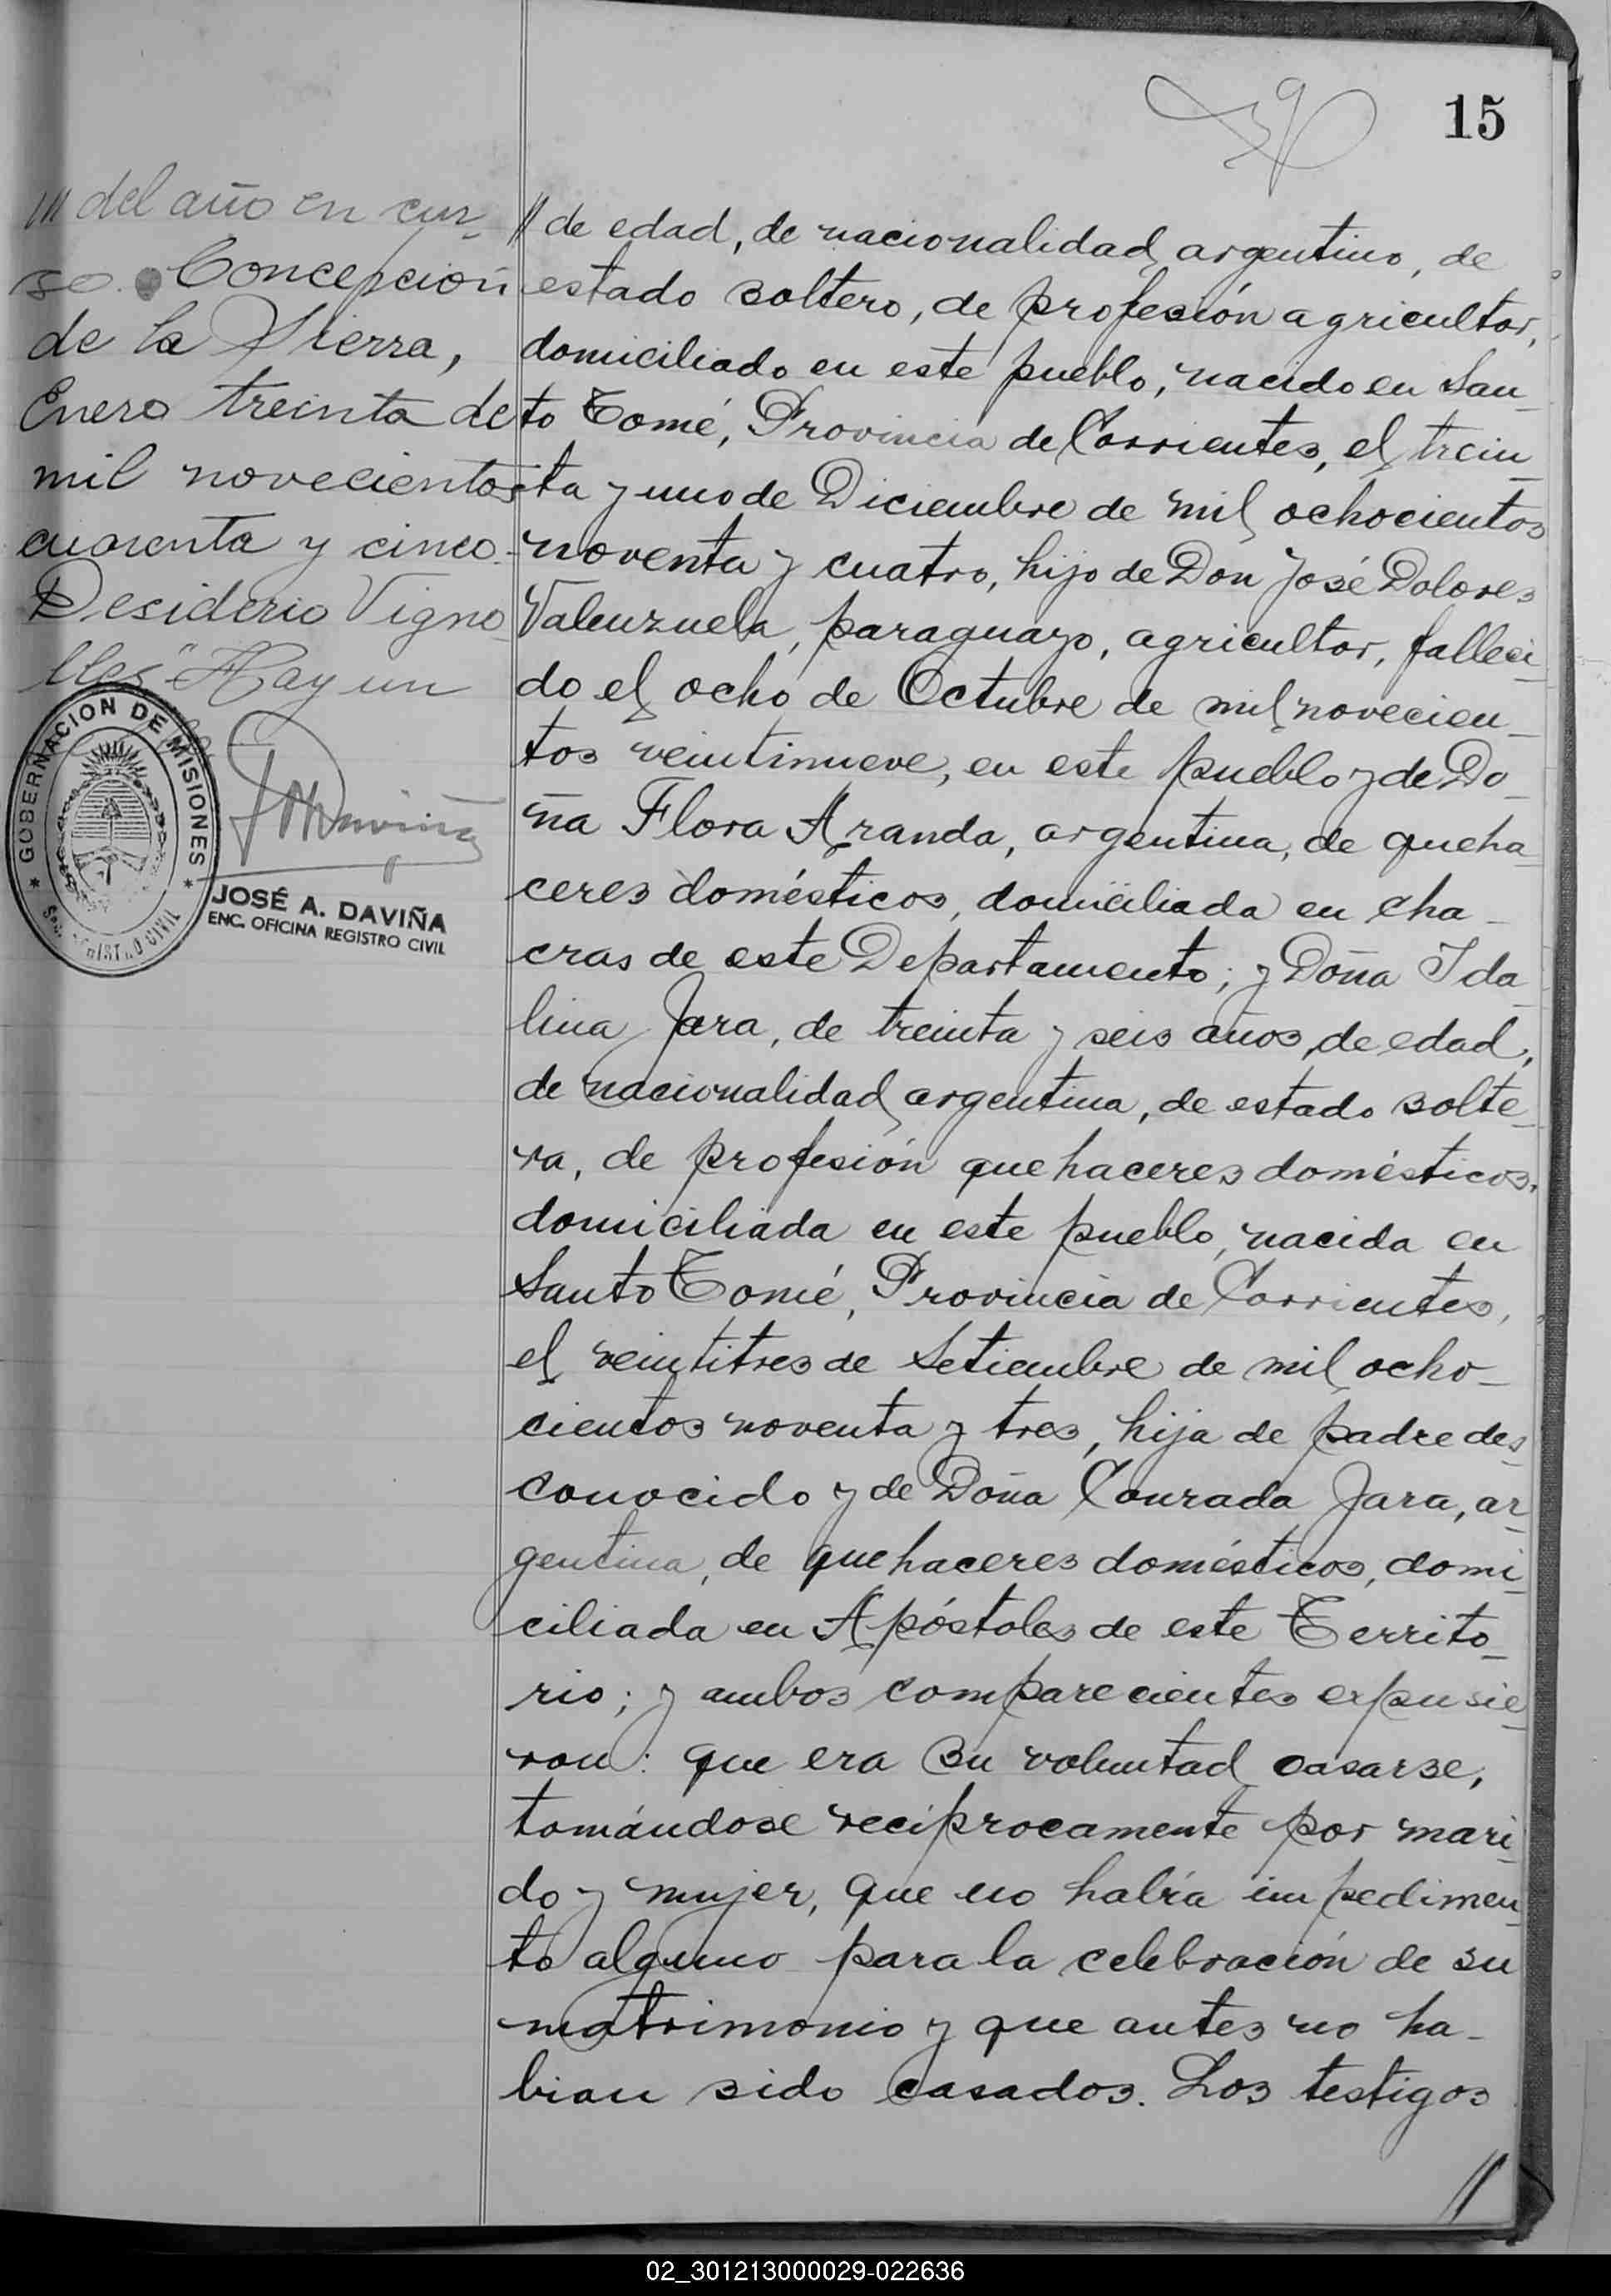 15
/// del año en cur-
so. Concepcion
de la Sierra,
Enero treinta de
mil novecientos
cuarenta y cinco.
Desiderio Vigno
lles" Hay un
GOBERNACION DE MISIONES
JOSÉ A. DAVIÑA
ENC. OFICINA REGISTRO CIVIL
// de edad, de nacionalidad argentino, de
estado soltero, de profesión agricultor,
domiciliado en este pueblo, nacido en San-
to Tomé, Provincia de Corrientes, el trein-
ta y uno de Diciembre de mil ochocientos
noventa y cuatro, hijo de Don José Dolores
Valenzuela, paraguayo, agricultor, falleci-
do el ocho de Octubre de mil novecien-
tos veintinueve, en este pueblo y de Do-
ña Flora Aranda, argentina, de queha-
ceres domésticos, domiciliada en cha-
cras de este Departamento; y Doña Ida-
lina Jara, de treinta y seis años de edad,
de nacionalidad argentina, de estado solte-
ra, de profesión quehaceres domésticos,
domiciliada en este pueblo, nacida en
Santo Tomé, Provincia de Corrientes,
el veintitres de Setiembre de mil ocho-
cientos noventa y tres, hija de padre des-
conocido y de Doña Conrada Jara, ar-
gentina, de quehaceres domésticos, domi-
ciliada en Apóstoles de este Territo-
rio; y ambos comparecientes expusie-
ron: que era su voluntad casarse,
tomándose recíprocamente por mari-
do y mujer, que no había impedimen-
to alguno para la celebración de su
matrimonio y que antes no ha-
bian sido casados. Los testigos
//
02_301213000029-022636